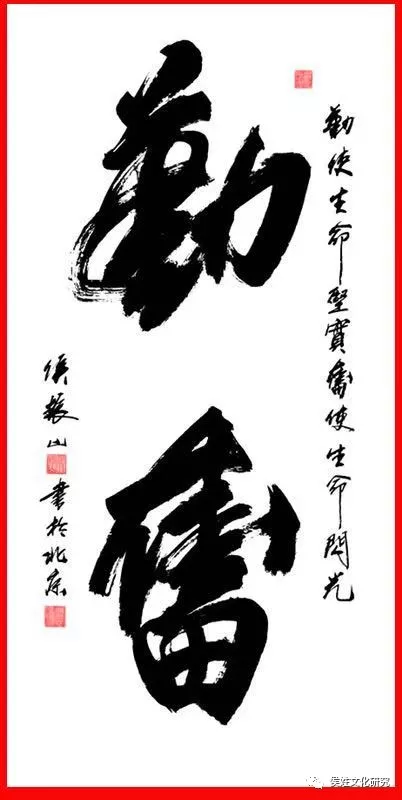 勤使生命堅實奮使生命閃光
勤奮
侯振山
書於北京
侯姓文化研究